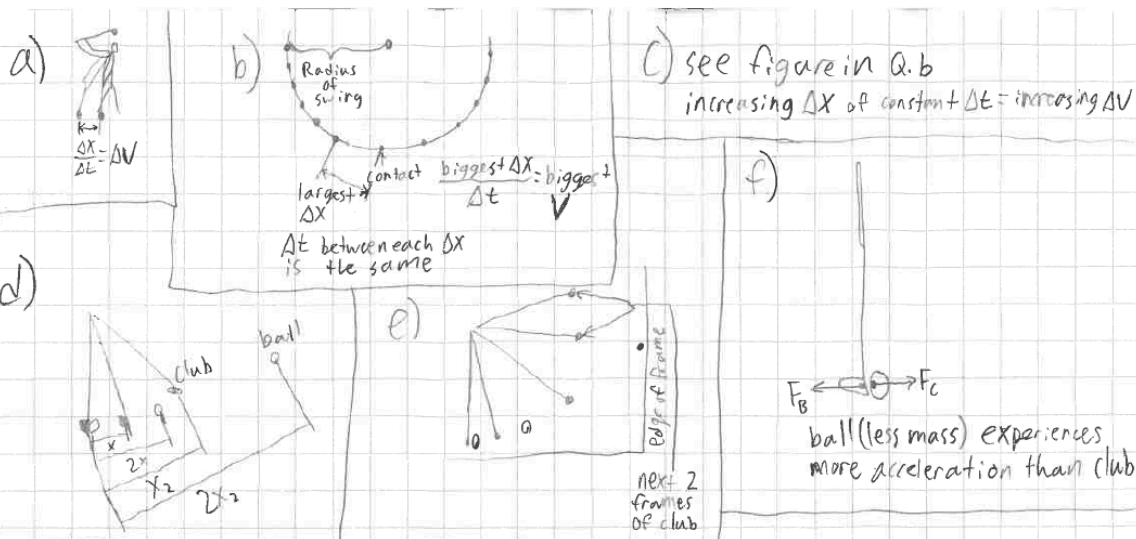 a)
Δx
Δt
= ΔV
b)
Radius
of
swing
contact
largest
Δx
biggest Δx
Δt
= biggest
V
Δt between each Δx
is the same
c) see figure in Q.b
increasing Δx of constant Δt = increasing ΔV
d)
ball
club
x
2x
x₂
2x₂
e)
edge of frame
next 2
frames
of club
f)
F_B
F_C
ball (less mass) experiences
more acceleration than club